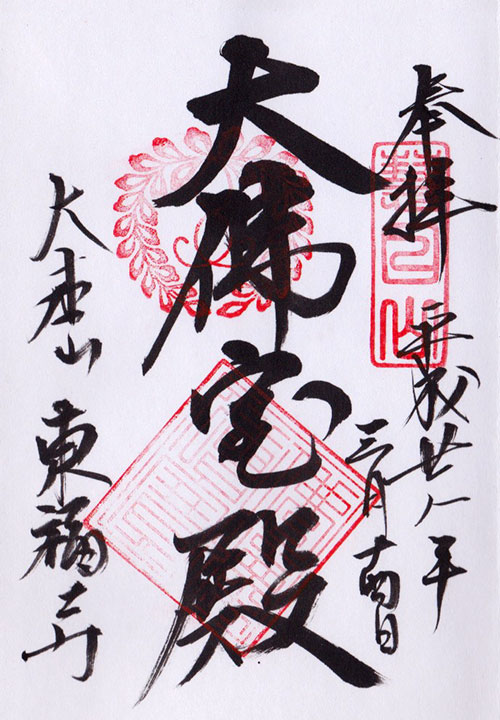 奉拝
平成廿八年
三月十四日
大佛宝殿
大本山 東福寺